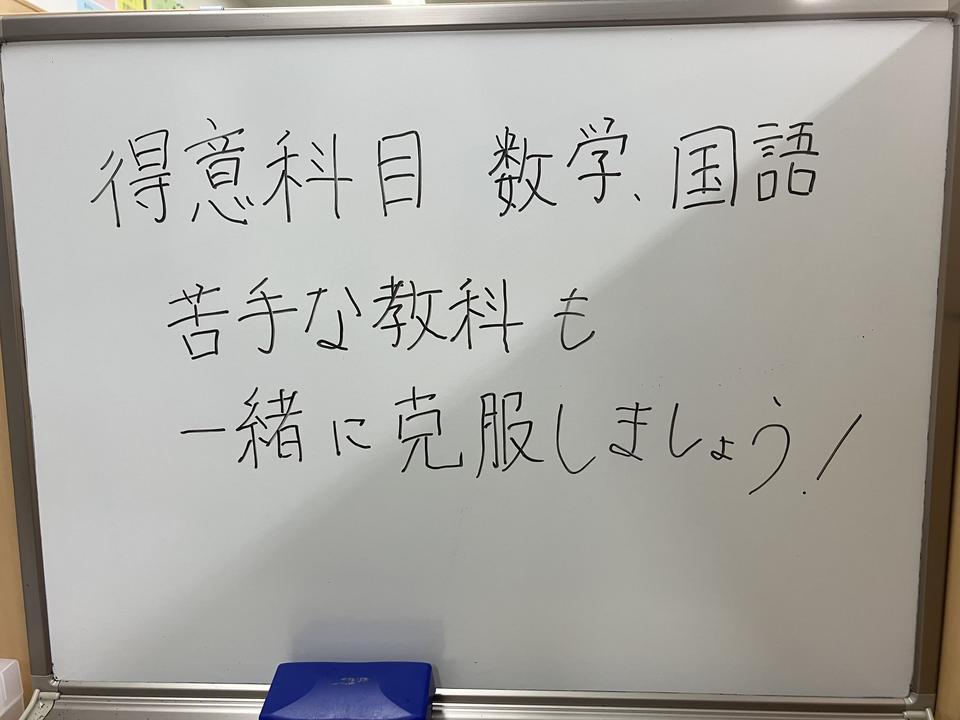 得意科目 数学、国語
苦手な教科も
一緒に克服しましょう!